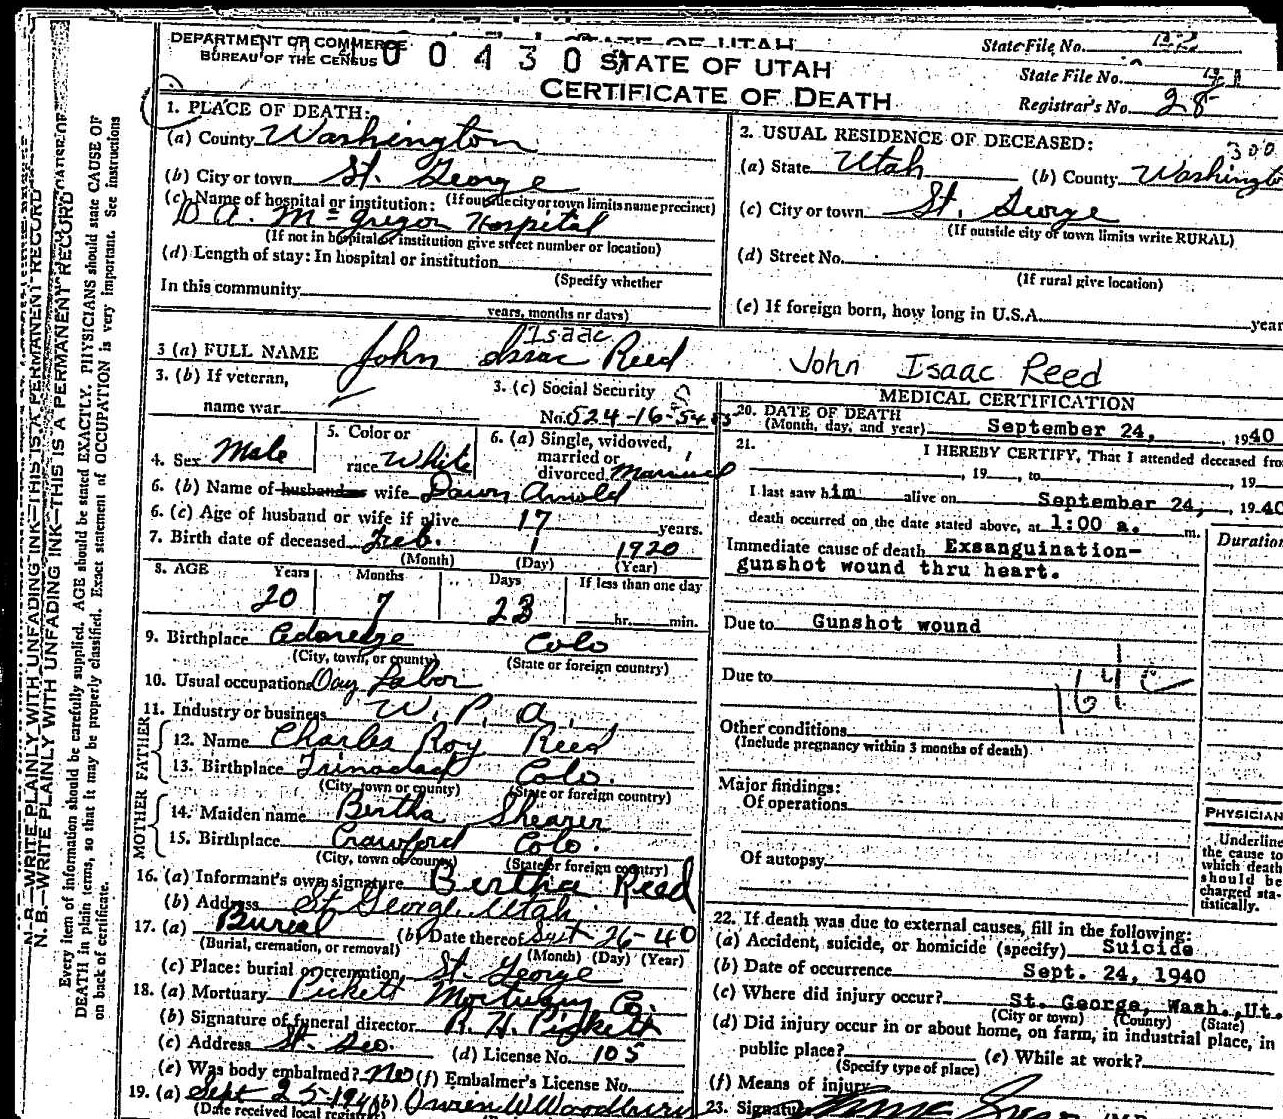 STATE OF UTAH
State File No.
DEPARTMENT OF COMMERCE
BUREAU OF THE CENSUS
0 0 4 3 0
STATE OF UTAH
State File No.
CERTIFICATE OF DEATH
Registrar's No. 28
N. B.—WRITE PLAINLY WITH UNFADING INK—THIS IS A PERMANENT RECORD
N. B.—WRITE PLAINLY WITH UNFADING INK—THIS IS A PERMANENT RECORD
Every item of information should be carefully supplied. AGE should be stated EXACTLY. PHYSICIANS should state CAUSE OF
DEATH in plain terms, so that it may be properly classified. Exact statement of OCCUPATION is very important. See instructions
on back of certificate.
1. PLACE OF DEATH:
(a) County Washington
(b) City or town St. George
(c) Name of hospital or institution: (If outside city or town limits name precinct)
D. A. McGregor Hospital
(If not in hospital or institution give street number or location)
(d) Length of stay: In hospital or institution
(Specify whether
In this community
years, months or days)
2. USUAL RESIDENCE OF DECEASED:
300
(a) State Utah (b) County Washingto
(c) City or town St. George
(If outside city or town limits write RURAL)
(d) Street No.
(If rural give location)
(e) If foreign born, how long in U.S.A. year
Isaac
3 (a) FULL NAME John Isaac Reed John Isaac Reed
3. (b) If veteran,
name war
3. (c) Social Security
No. 524-16-54
4. Sex Male
5. Color or
race White
6. (a) Single, widowed,
married or
divorced Married
6. (b) Name of husband or wife Dawn Arnold
6. (c) Age of husband or wife if alive 17 years.
7. Birth date of deceased Feb. 1 1920
(Month) (Day) (Year)
8. AGE Years Months Days If less than one day
20 7 23 hr. min.
9. Birthplace Cedaredge Colo
(City, town, or county) (State or foreign country)
10. Usual occupation Day Labor
11. Industry or business W. P. A.
FATHER
12. Name Charles Roy Reed
13. Birthplace Trinadad Colo.
(City, town or county) (State or foreign country)
MOTHER
14. Maiden name Bertha Shearer
15. Birthplace Crawford Colo.
(City, town or county) (State or foreign country)
16. (a) Informant's own signature Bertha Reed
(b) Address St George, Utah.
17. (a) Burial (b) Date thereof Sept 26-40
(Burial, cremation, or removal) (Month) (Day) (Year)
(c) Place: burial or cremation St. George
18. (a) Mortuary Pickett Mortuary Co.
(b) Signature of funeral director R. H. Pickett
(c) Address St. Geo. (d) License No. 105
(e) Was body embalmed? No (f) Embalmer's License No.
19. (a) Sept 25-1940 (b) Owen W Woodbury
(Date received local registrar)
MEDICAL CERTIFICATION
20. DATE OF DEATH
(Month, day, and year) September 24, , 1940
21. I HEREBY CERTIFY, That I attended deceased fro
, 19 , to , 19
I last saw him alive on September 24, , 1940
death occurred on the date stated above, at 1:00 a. m.
Duration
Immediate cause of death Exsanguination-
gunshot wound thru heart.
Due to Gunshot wound
Due to
164 c
Other conditions
(Include pregnancy within 3 months of death)
Major findings:
Of operations
Of autopsy
PHYSICIAN
Underline
the cause to
which death
should be
charged sta-
tistically.
22. If death was due to external causes, fill in the following:
(a) Accident, suicide, or homicide (specify) Suicide
(b) Date of occurrence Sept. 24, 1940
(c) Where did injury occur? St. George, Wash., Ut.
(City or town) (County) (State)
(d) Did injury occur in or about home, on farm, in industrial place, in
public place? (e) While at work?
(Specify type of place)
(f) Means of injury
23. Signature